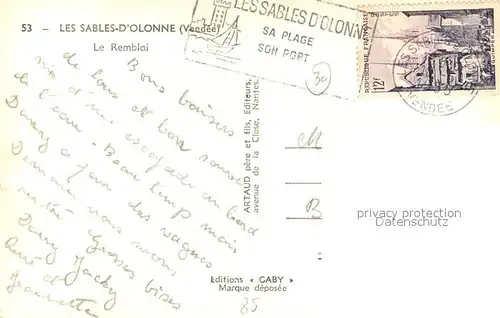 53 - LES SABLES-D'OLONNE (Vendée)
Le Remblai
LES SABLES D'OLONNE
SA PLAGE
SON PORT
REPUBLIQUE FRANÇAISE
12F
VENDEE
30
Bons baisers
de tous et bon souvenir
d'une escapade au bord
de l'eau - Beau temps mais
Dany a peur des vagues
Demain nous irons
Grosses bises
Dany Jacky
René et
Jeannette
ARTAUD père et fils, Editeurs,
avenue de la Close, Nantes.
M
R
privacy protection
Datenschutz
Editions « GABY »
Marque déposée
85